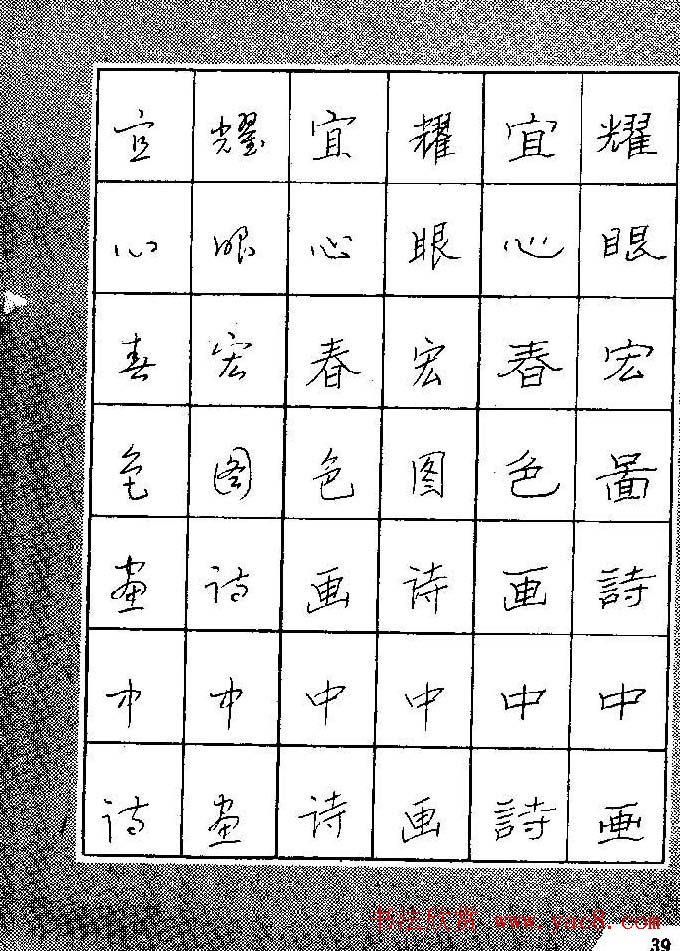 耀眼宏啚詩中画
宜心春色画中詩
耀眼宏图诗中画
宜心春色画中诗
耀眼宏图诗中畫
宜心春色畫中诗
书法欣赏 www.yac8.com
39